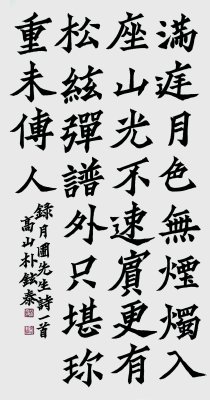 滿庭月色無煙燭入
座山光不速賓更有
松絃彈譜外只堪珎
重未傳人
錄月圃先生詩一首
高山朴鉉泰